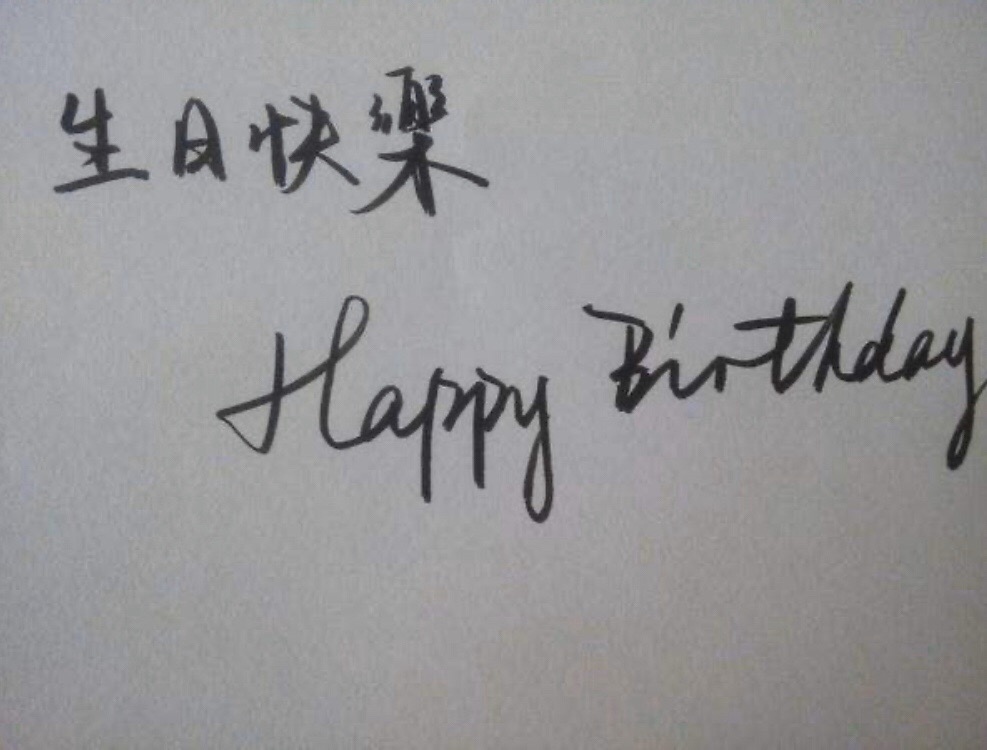 生日快樂
Happy Birthday